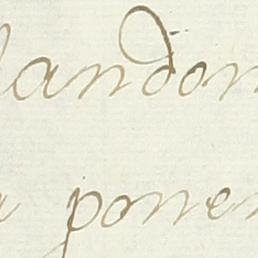 landon
a poner